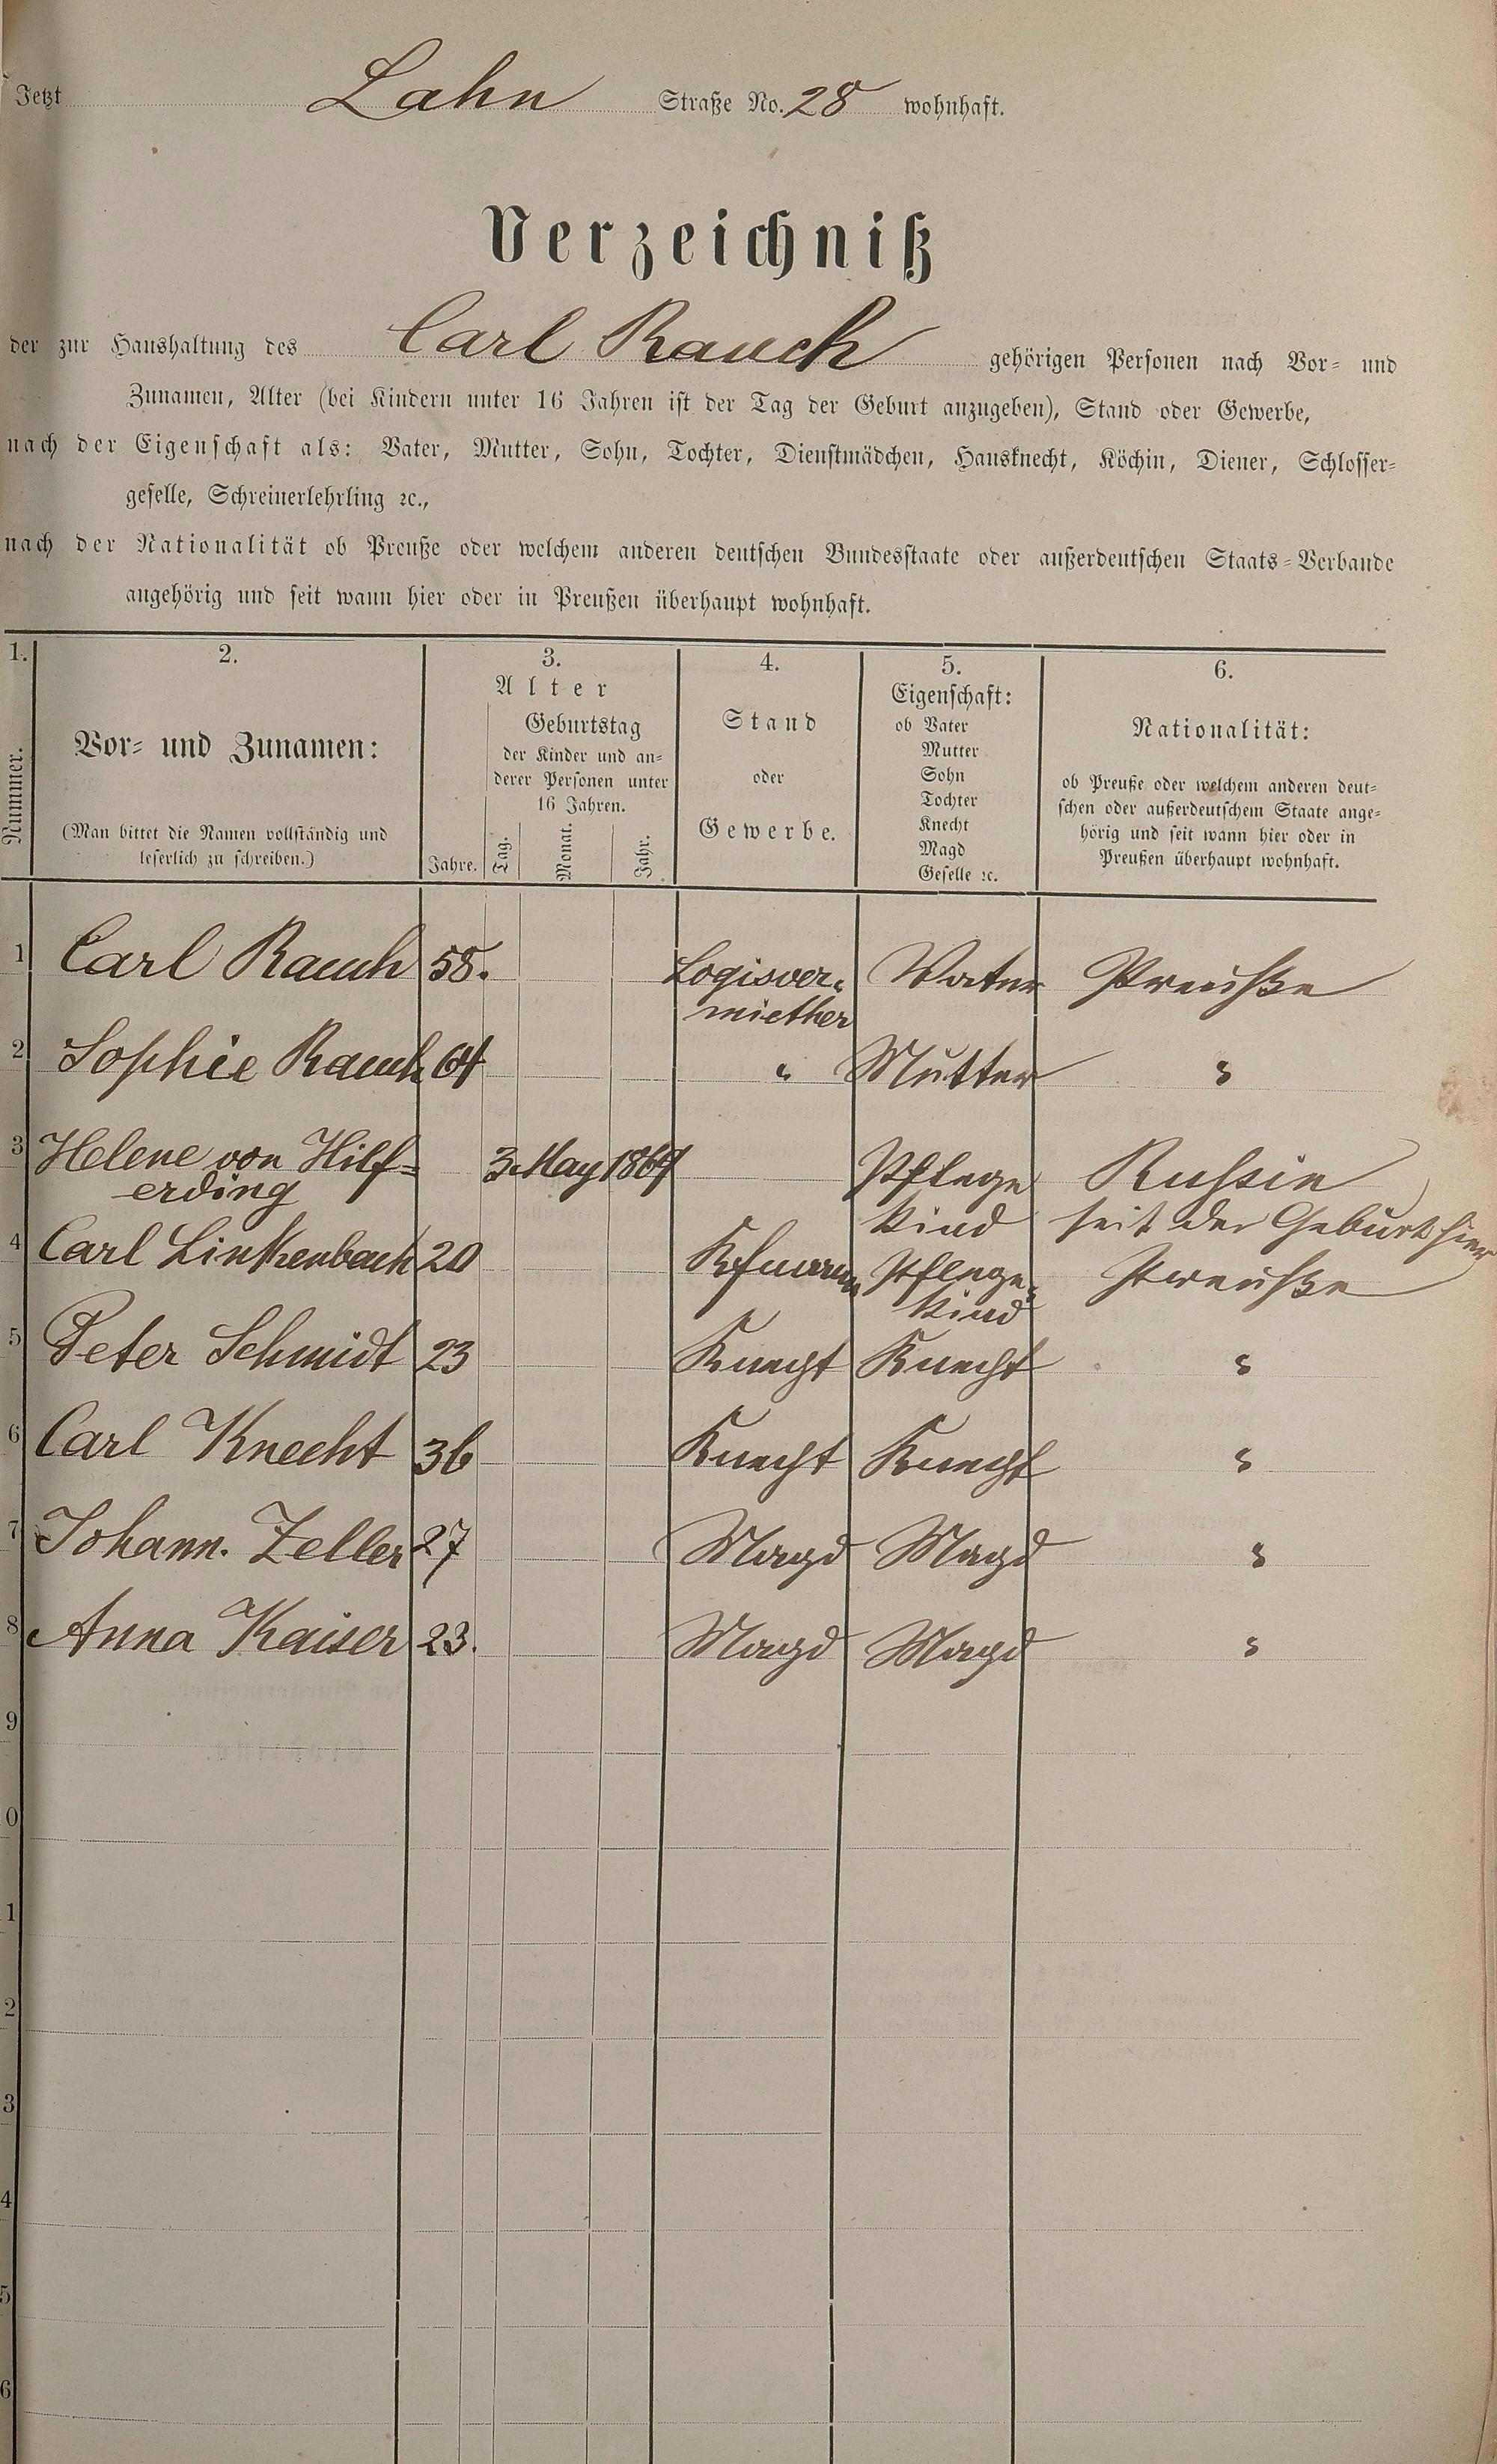 Jetzt Lahn Straße No. 28 wohnhaft.
Verzeichniß
der zur Haushaltung des Carl Rauch gehörigen Personen nach Vor- und
Zunamen, Alter (bei Kindern unter 16 Jahren ist der Tag der Geburt anzugeben), Stand oder Gewerbe,
nach der Eigenschaft als: Vater, Mutter, Sohn, Tochter, Dienstmädchen, Hausknecht, Köchin, Diener, Schlosser-
geselle, Schreinerlehrling ꝛc.,
nach der Nationalität ob Preuße oder welchem anderen deutschen Bundesstaate oder außerdeutschen Staats-Verbande
angehörig und seit wann hier oder in Preußen überhaupt wohnhaft.
1. 2. 3. 4. 5. 6.
Nummer.
Vor- und Zunamen:
(Man bittet die Namen vollständig und
leserlich zu schreiben.)
Alter
Jahre.
Geburtstag
der Kinder und an-
derer Personen unter
16 Jahren.
Tag. Monat. Jahr.
Stand
oder
Gewerbe.
Eigenschaft:
ob Vater
Mutter
Sohn
Tochter
Knecht
Magd
Geselle ꝛc.
Nationalität:
ob Preuße oder welchem anderen deut-
schen oder außerdeutschem Staate ange-
hörig und seit wann hier oder in
Preußen überhaupt wohnhaft.
1 Carl Rauch 58. Logisver- Vater Preuße
miether
2 Sophie Rauch 64 " Mutter "
3 Helene von Hilf- 3. May 1869 Pflege Russin
erding kind seit der Geburt hier
4 Carl Linkenbach 20 Kfmann Pflege- Preuße
kind
5 Peter Schmidt 23 Knecht Knecht "
6 Carl Knecht 36 Knecht Knecht "
7 Johann. Zeller 27 Magd Magd "
8 Anna Kaiser 23. Magd Magd "
9
0
1
2
3
4
5
6